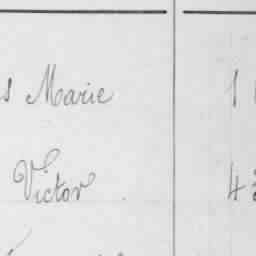 s Marie 1
Victor 4